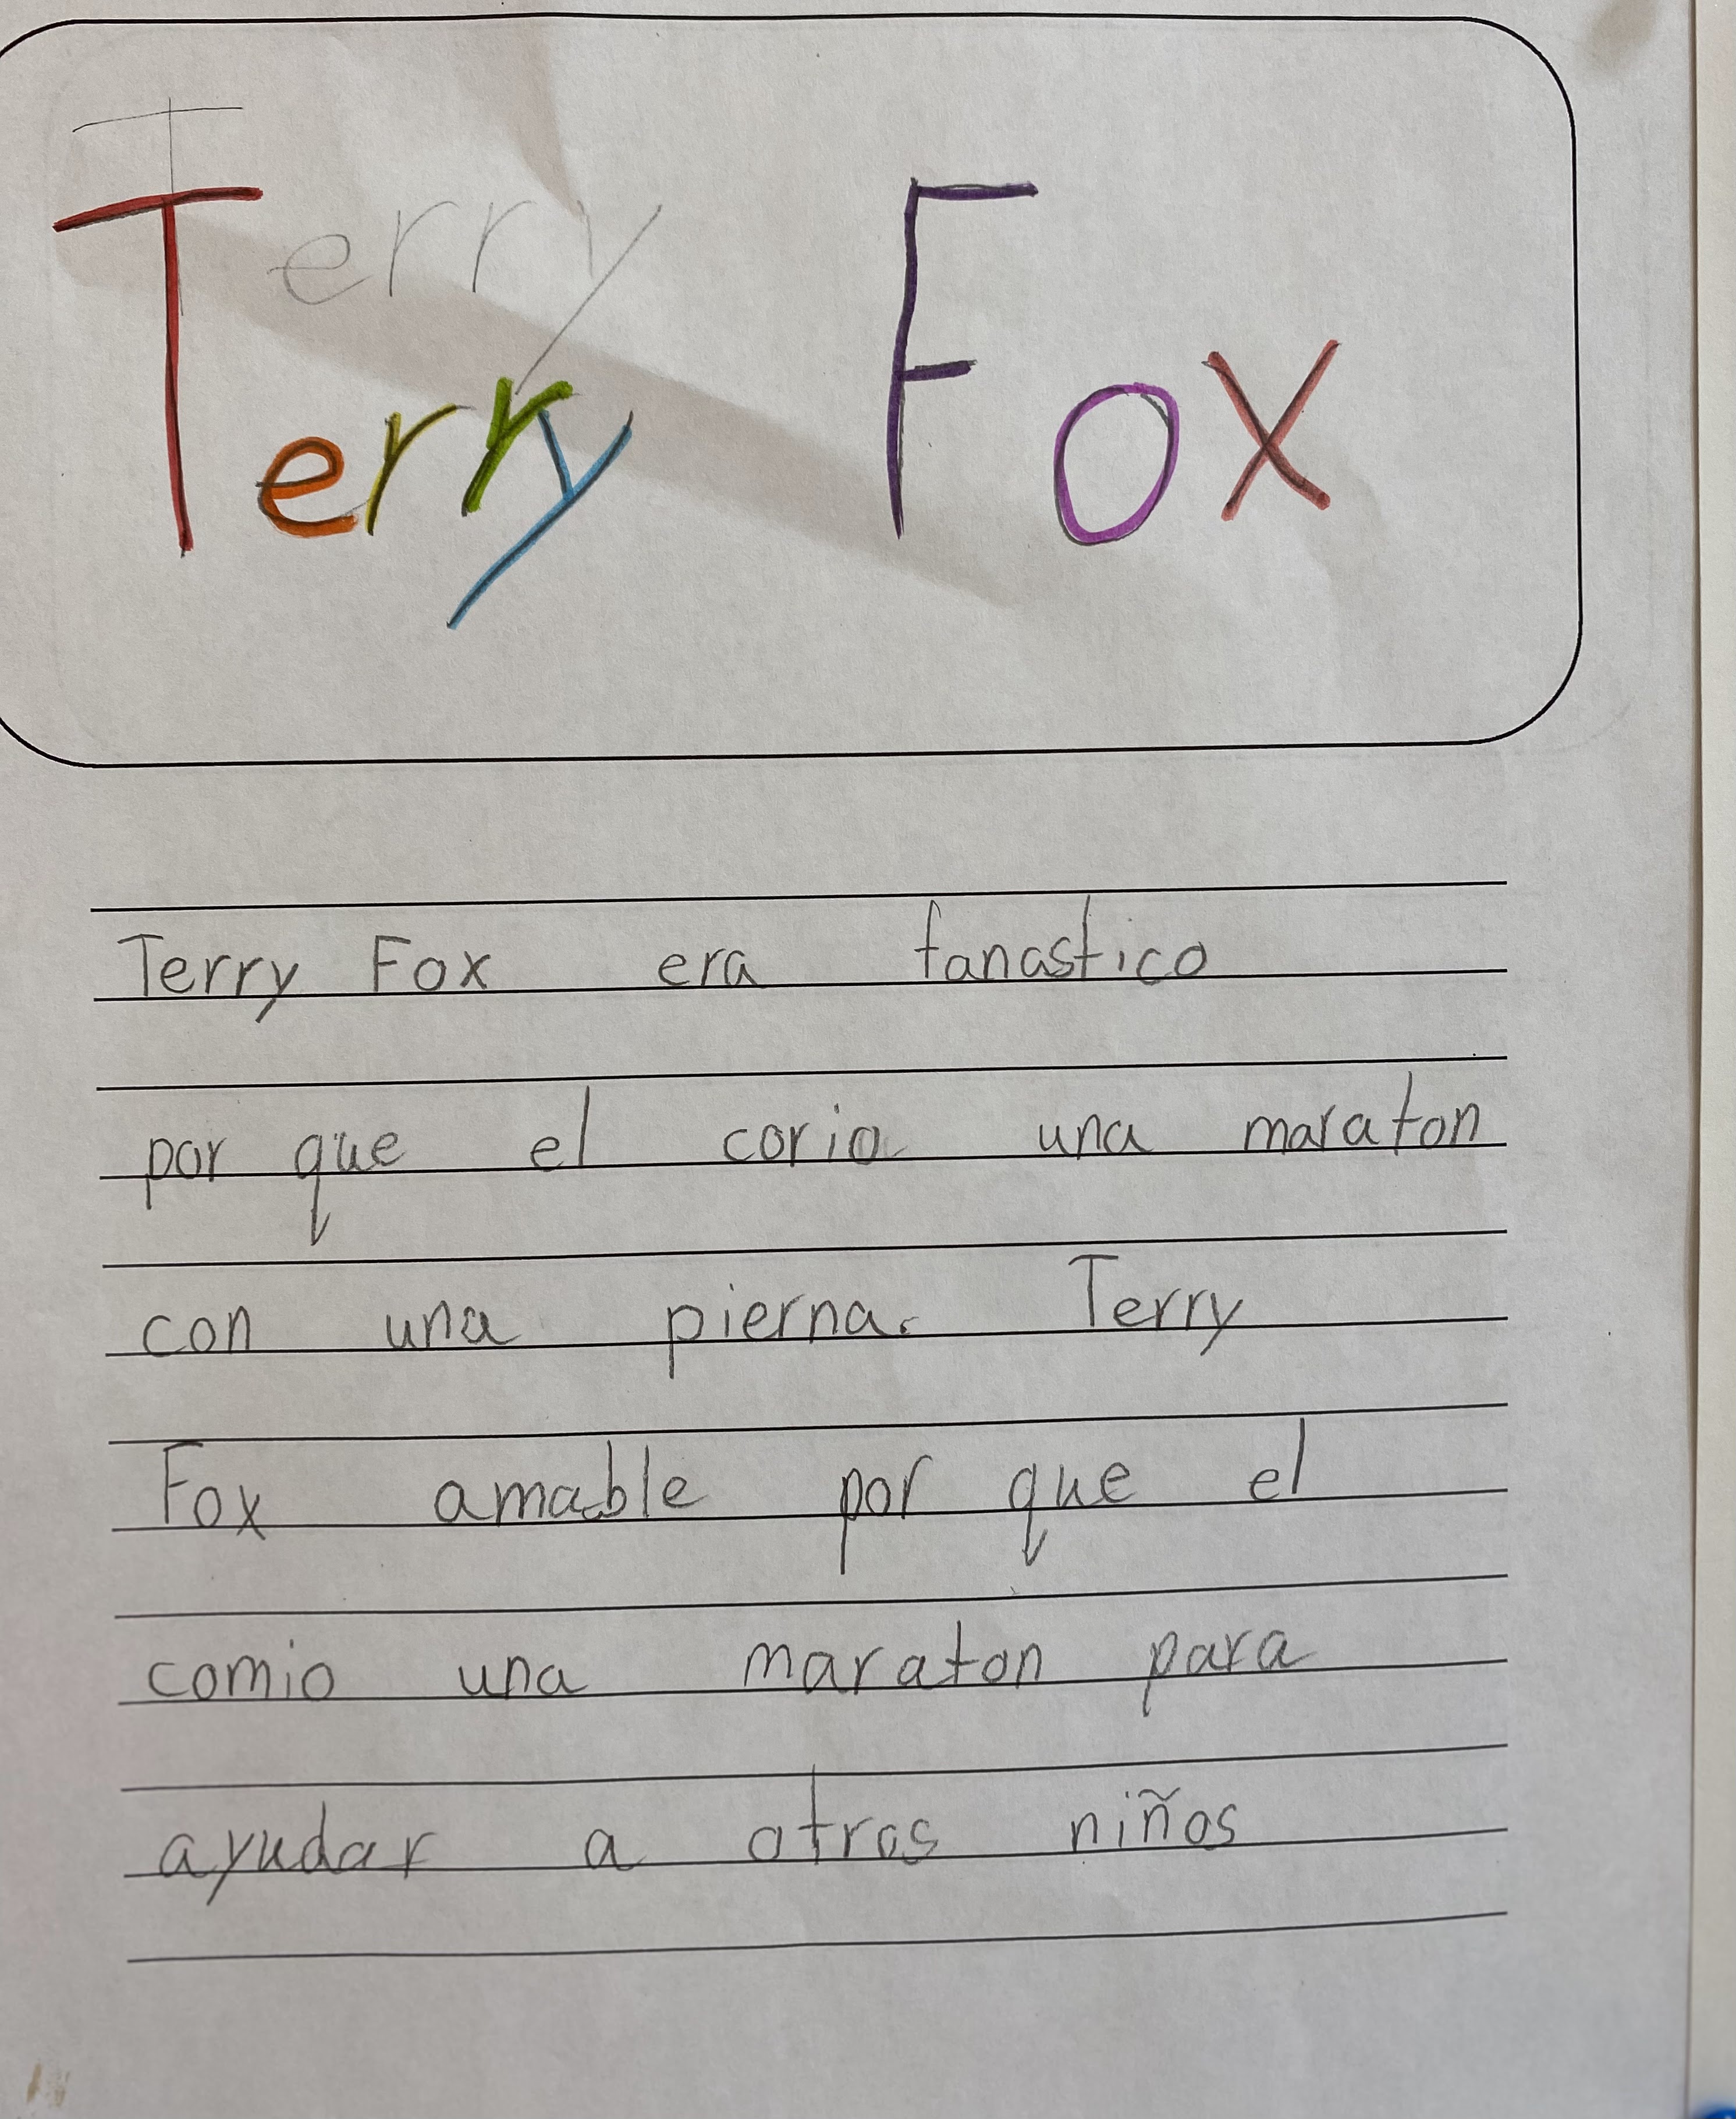 Terry
Terry Fox
Terry Fox era fanastico
por que el corio una maraton
con una pierna. Terry
Fox amable por que el
comio una maraton para
ayudar a otros niños